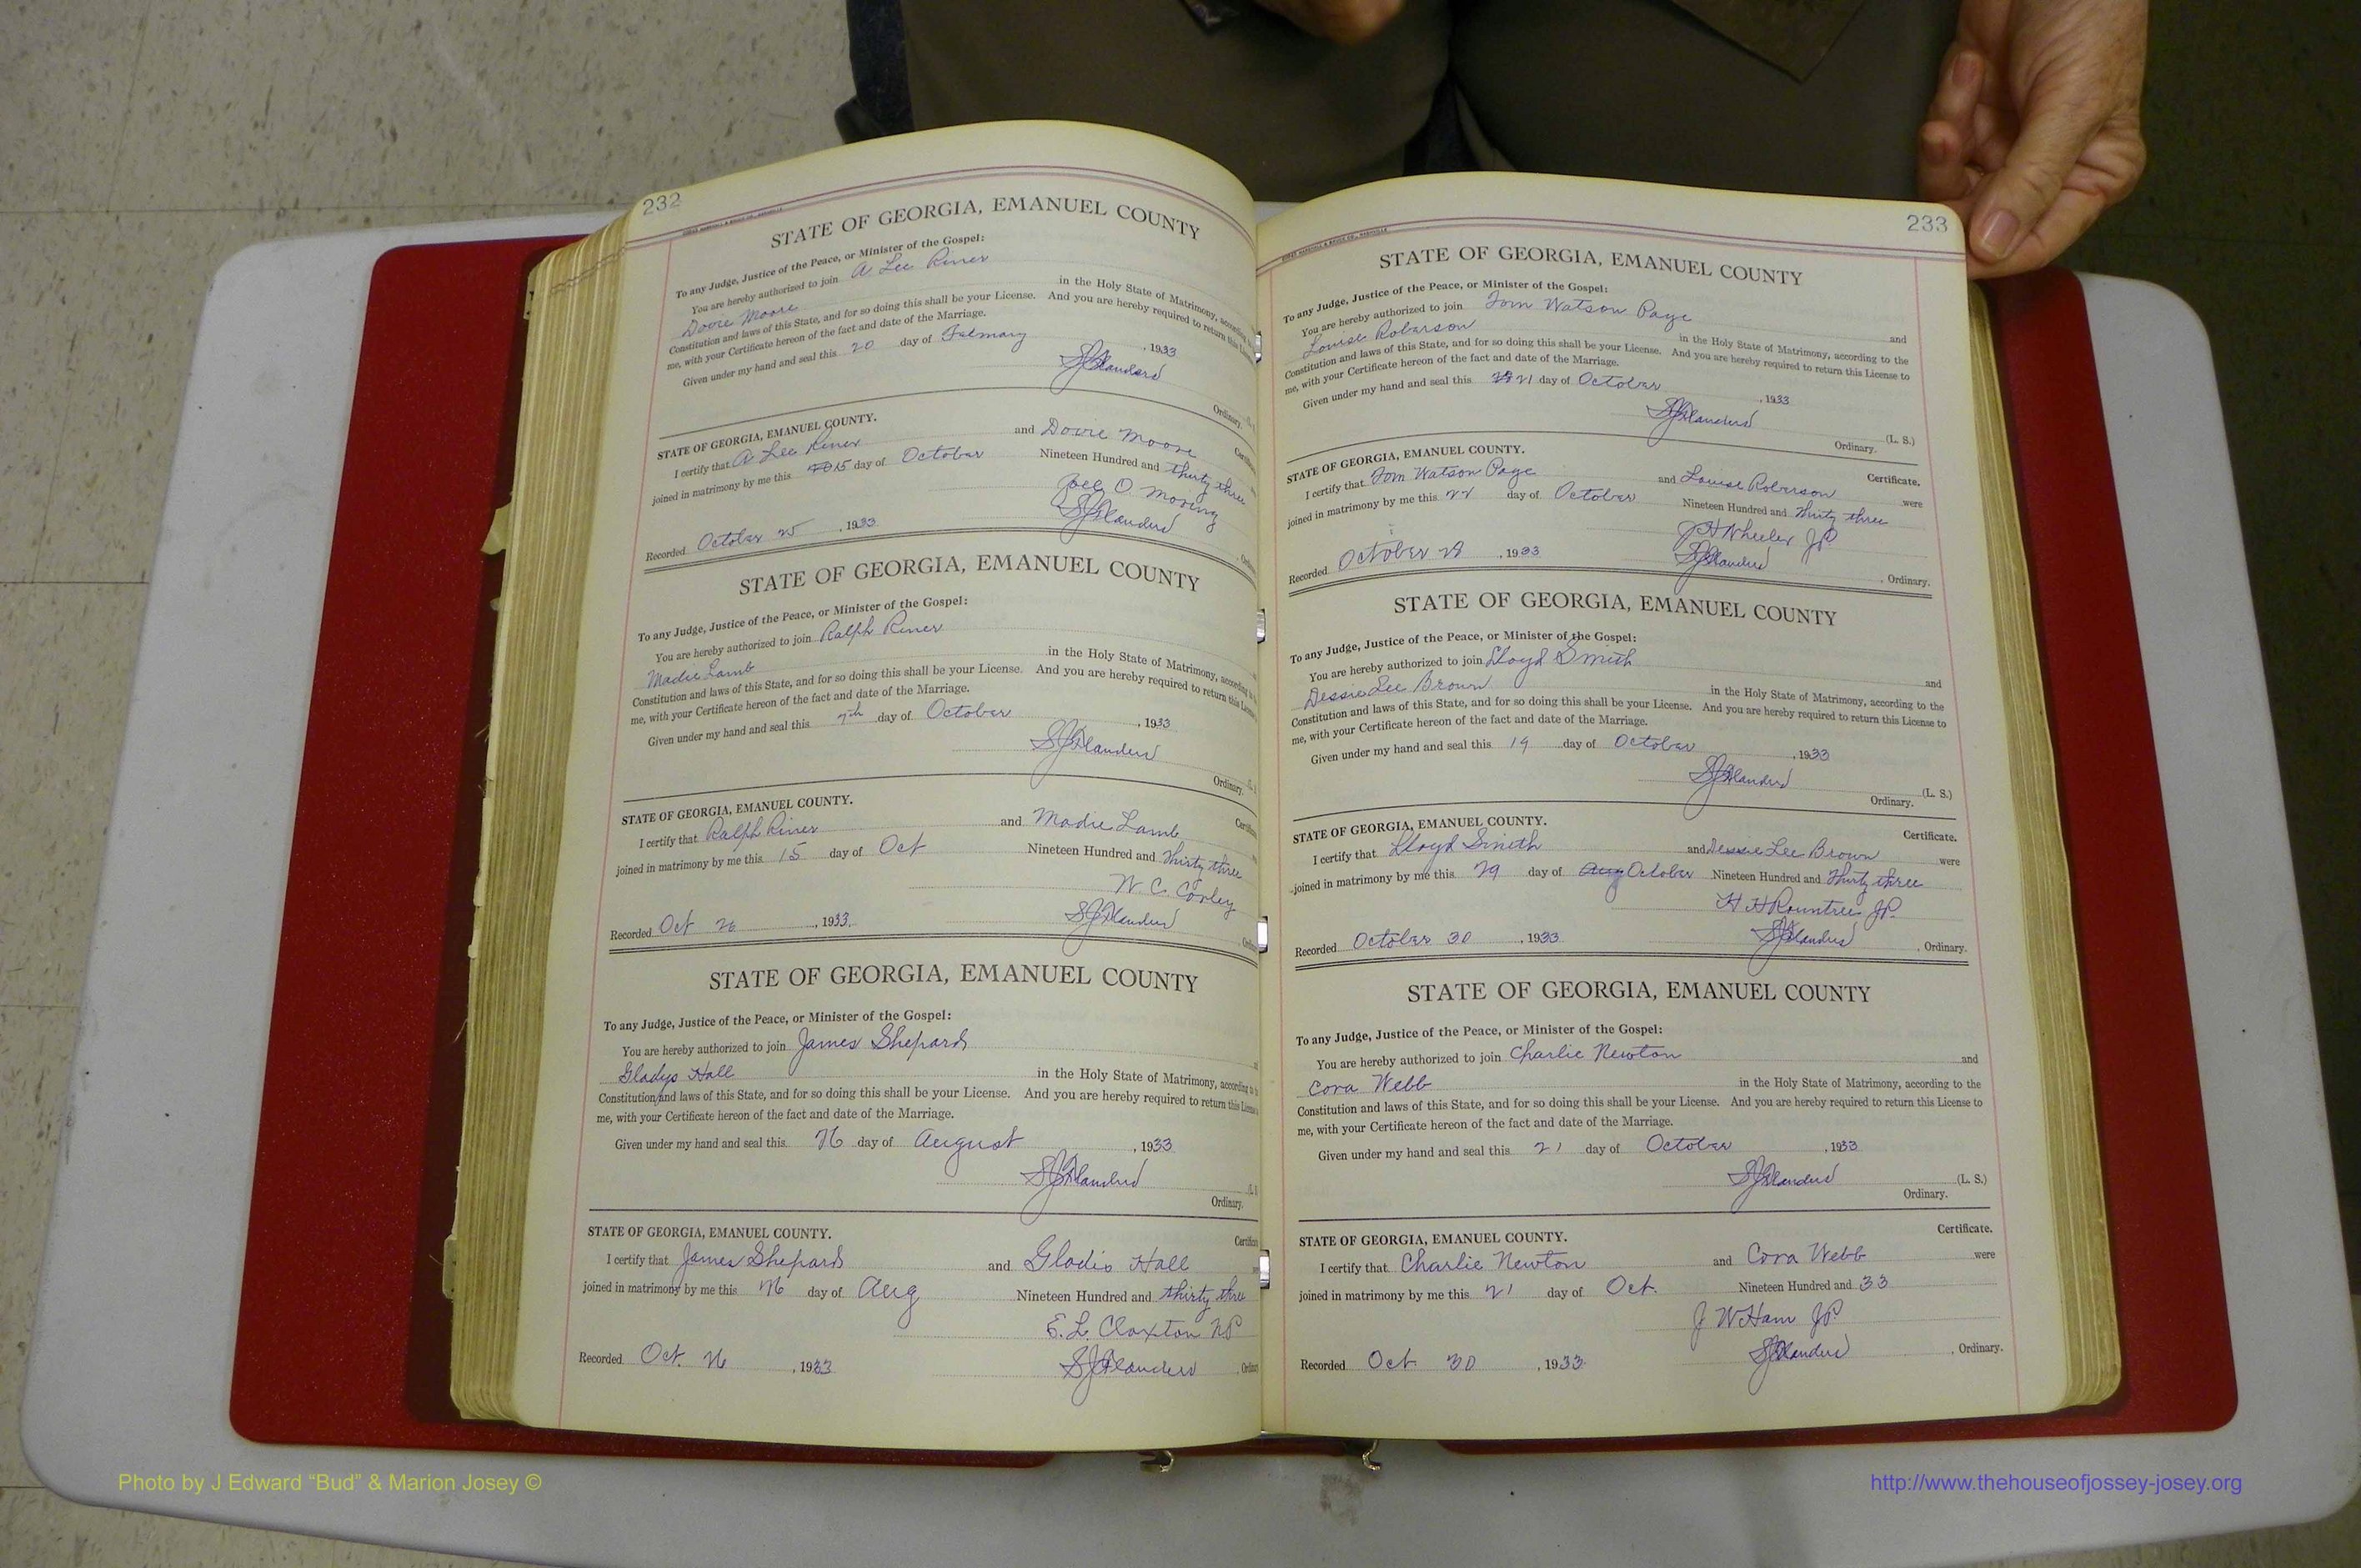 232
STATE OF GEORGIA, EMANUEL COUNTY
To any Judge, Justice of the Peace, or Minister of the Gospel:
You are hereby authorized to join A Lee Riner
Dovie Moore in the Holy State of Matrimony, according
Constitution and laws of this State, and for so doing this shall be your License. And you are hereby required to return this
me, with your Certificate hereon of the fact and date of the Marriage.
Given under my hand and seal this 20 day of February , 1933
S J Flanders
Ordinary.
STATE OF GEORGIA, EMANUEL COUNTY.
I certify that A Lee Riner and Dovie Moore
joined in matrimony by me this 15 day of October Nineteen Hundred and thirty three
Joel O. Moring
Recorded October 25 , 1933 S J Flanders
STATE OF GEORGIA, EMANUEL COUNTY
To any Judge, Justice of the Peace, or Minister of the Gospel:
You are hereby authorized to join Ralph Riner
Madie Lamb in the Holy State of Matrimony, according
Constitution and laws of this State, and for so doing this shall be your License. And you are hereby required to return this
me, with your Certificate hereon of the fact and date of the Marriage.
Given under my hand and seal this day of October , 1933
S J Flanders
Ordinary.
STATE OF GEORGIA, EMANUEL COUNTY.
I certify that Ralph Riner and Madie Lamb
joined in matrimony by me this 15 day of Oct Nineteen Hundred and Thirty three
W. C. Corley
Recorded Oct 26 , 1933. S J Flanders
STATE OF GEORGIA, EMANUEL COUNTY
To any Judge, Justice of the Peace, or Minister of the Gospel:
You are hereby authorized to join James Shepard
Gladys Hall in the Holy State of Matrimony, according to
Constitution and laws of this State, and for so doing this shall be your License. And you are hereby required to return this License
me, with your Certificate hereon of the fact and date of the Marriage.
Given under my hand and seal this 26 day of August , 1933
S J Flanders
Ordinary.
STATE OF GEORGIA, EMANUEL COUNTY.
I certify that James Shepard and Gladis Hall
joined in matrimony by me this 26 day of Aug Nineteen Hundred and thirty three
E. L. Claxton NP
Recorded Oct. 26 , 1933 S J Flanders
233
STATE OF GEORGIA, EMANUEL COUNTY
To any Judge, Justice of the Peace, or Minister of the Gospel:
You are hereby authorized to join Tom Watson Page and
Louise Roberson in the Holy State of Matrimony, according to the
Constitution and laws of this State, and for so doing this shall be your License. And you are hereby required to return this License to
me, with your Certificate hereon of the fact and date of the Marriage.
Given under my hand and seal this 21 day of October , 1933
S J Flanders (L. S.)
Ordinary.
STATE OF GEORGIA, EMANUEL COUNTY. Certificate.
I certify that Tom Watson Page and Louise Roberson were
joined in matrimony by me this 22 day of October Nineteen Hundred and Thirty three
J H Wheeler JP.
Recorded October 28 , 1933 S J Flanders , Ordinary.
STATE OF GEORGIA, EMANUEL COUNTY
To any Judge, Justice of the Peace, or Minister of the Gospel:
You are hereby authorized to join Lloyd Smith and
Dessie Lee Brown in the Holy State of Matrimony, according to the
Constitution and laws of this State, and for so doing this shall be your License. And you are hereby required to return this License to
me, with your Certificate hereon of the fact and date of the Marriage.
Given under my hand and seal this 19 day of October , 1933
S J Flanders (L. S.)
Ordinary.
STATE OF GEORGIA, EMANUEL COUNTY. Certificate.
I certify that Lloyd Smith and Dessie Lee Brown were
joined in matrimony by me this 29 day of Aug October Nineteen Hundred and Thirty three
H H Rountree JP.
Recorded October 30 , 1933 S J Flanders , Ordinary.
STATE OF GEORGIA, EMANUEL COUNTY
To any Judge, Justice of the Peace, or Minister of the Gospel:
You are hereby authorized to join Charlie Newton and
Cora Webb in the Holy State of Matrimony, according to the
Constitution and laws of this State, and for so doing this shall be your License. And you are hereby required to return this License to
me, with your Certificate hereon of the fact and date of the Marriage.
Given under my hand and seal this 21 day of October , 1933
S J Flanders (L. S.)
Ordinary.
STATE OF GEORGIA, EMANUEL COUNTY. Certificate.
I certify that Charlie Newton and Cora Webb were
joined in matrimony by me this 21 day of Oct. Nineteen Hundred and 33
J W Ham JP.
Recorded Oct 30 , 1933 S J Flanders , Ordinary.
Photo by J Edward “Bud” & Marion Josey ©
http://www.thehouseofjossey-josey.org